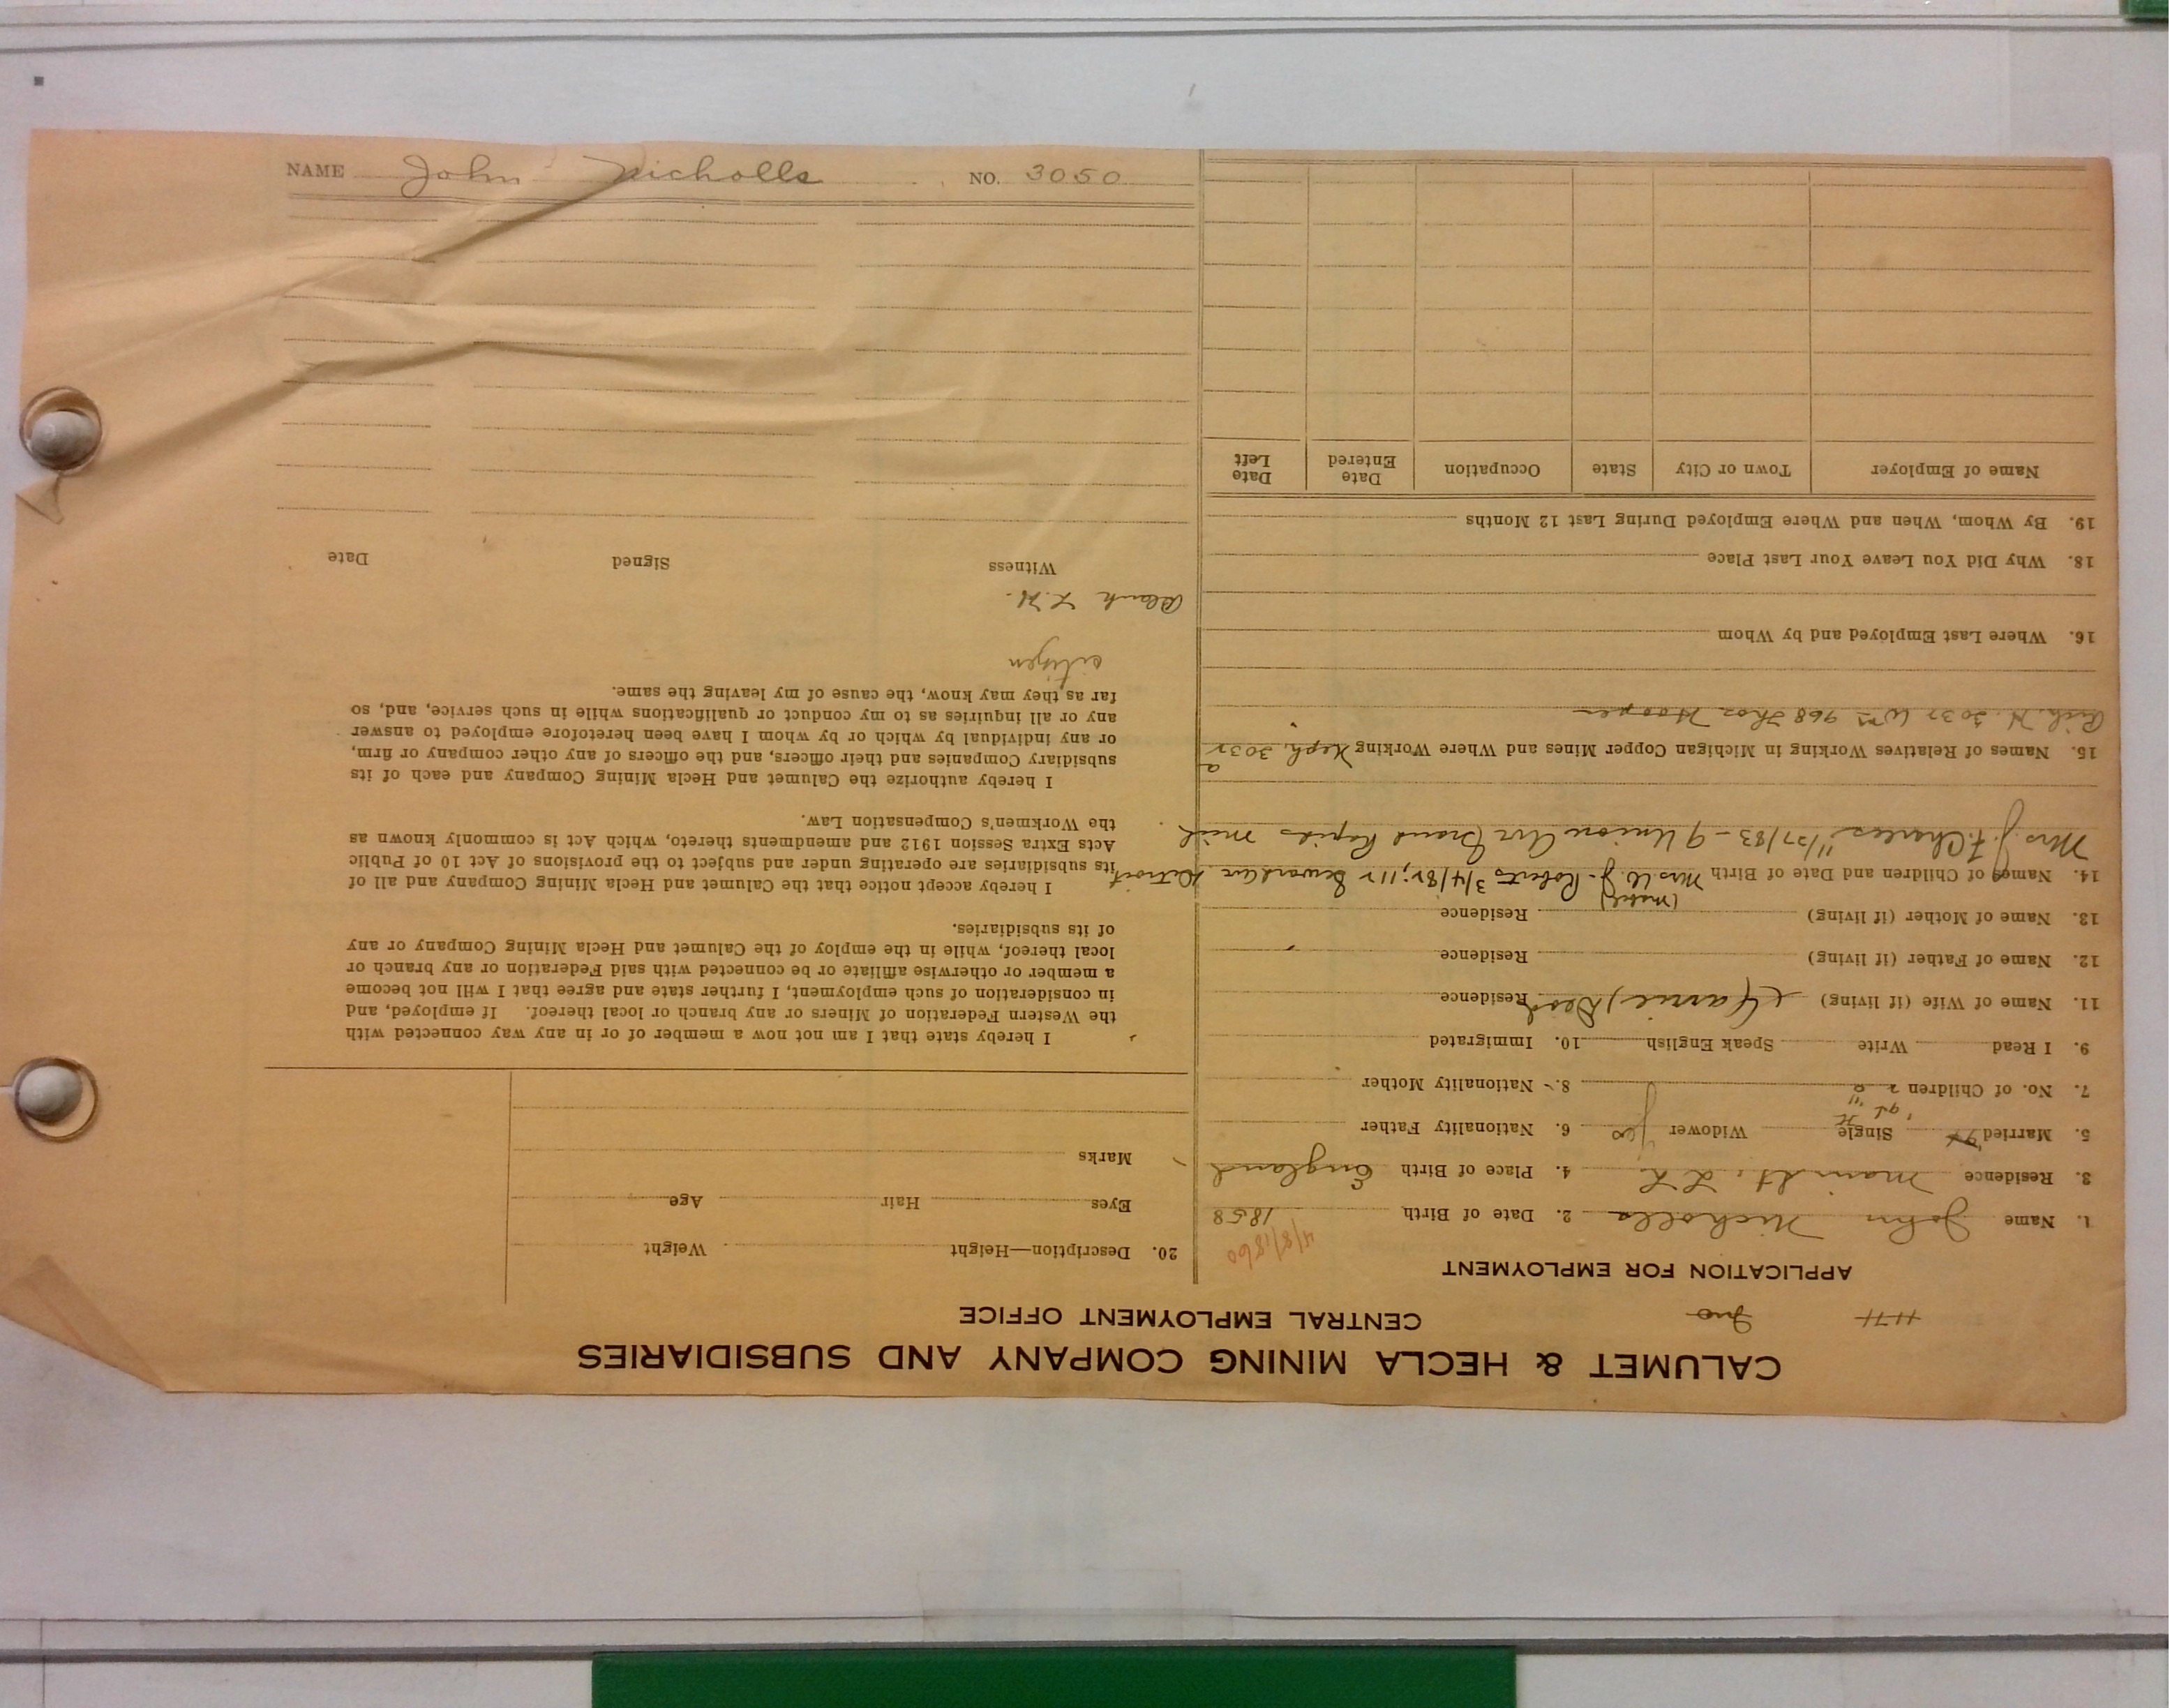 CALUMET & HECLA MINING COMPANY AND SUBSIDIARIES
CENTRAL EMPLOYMENT OFFICE
APPLICATION FOR EMPLOYMENT
4/8/1860
1. Name John Nicholls 2. Date of Birth 1858
3. Residence Main St. L.L. 4. Place of Birth England
5. Married Single Widower Yes 6. Nationality Father
7. No. of Children 2 8. Nationality Mother
9. I Read Write Speak English 10. Immigrated
11. Name of Wife (if living) Dead Residence
12. Name of Father (if living) Residence
13. Name of Mother (if living) Residence
(Mabel)
14. Names of Children and Date of Birth Mrs W. J. Roberts 3/4/82; 112 Seward Ave Detroit
Mrs J. F. Charles 11/27/83 - 9 Union Ave Grand Rapids Mich
15. Names of Relatives Working in Michigan Copper Mines and Where Working Steph. 3032
Rich. N. 3037 Wm 968 Thos. Hooper
16. Where Last Employed and by Whom
18. Why Did You Leave Your Last Place
19. By Whom, When and Where Employed During Last 12 Months
Name of Employer Town or City State Occupation Date Entered Date Left
20. Description—Height Weight
Eyes Hair Age
Marks
I hereby state that I am not now a member of or in any way connected with
the Western Federation of Miners or any branch or local thereof. If employed, and
in consideration of such employment, I further state and agree that I will not become
a member or otherwise affiliate or be connected with said Federation or any branch or
local thereof, while in the employ of the Calumet and Hecla Mining Company or any
of its subsidiaries.
I hereby accept notice that the Calumet and Hecla Mining Company and all of
its subsidiaries are operating under and subject to the provisions of Act 10 of Public
Acts Extra Session 1912 and amendments thereto, which Act is commonly known as
the Workmen's Compensation Law.
I hereby authorize the Calumet and Hecla Mining Company and each of its
subsidiary Companies and their officers, and the officers of any other company or firm,
or any individual by which or by whom I have been heretofore employed to answer
any or all inquiries as to my conduct or qualifications while in such service, and, so
far as they may know, the cause of my leaving the same.
citizen
Witness Signed Date
NAME John Nicholls NO. 3050